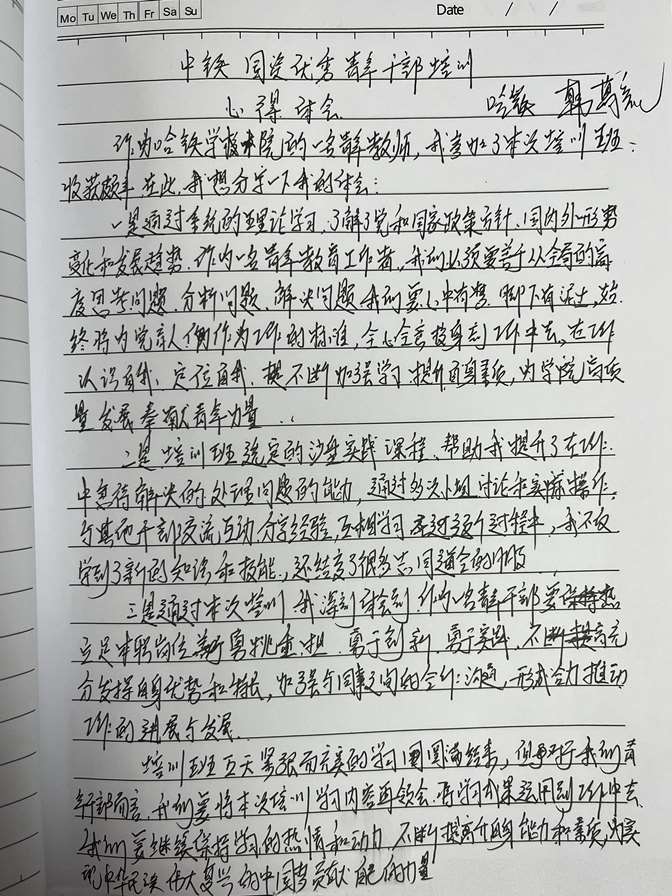 Mo Tu We Th Fr Sa Su Date / /
中铁国资优秀青年干部培训
心得体会
哈铁 韩
作为哈铁学院的一名青年教师,我参加了本次培训班,
收获颇丰,在此,我想分享一下我的体会:
一是通过系统的理论学习,了解了党和国家政策方针、国内外形势
变化和发展趋势。作为一名青年教育工作者,我们必须要善于从全局的高
度思考问题、分析问题、解决问题。我们要心中有梦,脚下有泥土,始
终将为党育人作为工作的标准,全心全意投身到工作中去,在工作
认识自我、定位自我,不断加强学习,提升自身素质,为学院高质
量发展奉献青年力量。
二是培训班设定的沙盘实战课程,帮助我提升了在工作
中急待解决的处理问题的能力,通过多次小组讨论和实操操作,
与其他干部交流互动,分享经验,互相学习,通过这个过程中,我不仅
学到了新的知识和技能,还结交了很多志同道合的朋友。
三是通过本次培训,我深刻体会到作为一名青年干部要
立足本职岗位,勇挑重担,勇于创新,勇于实践,不断充
分发挥自身优势和特长,加强与同事之间的合作与沟通,形成合力推动
工作的进展与发展。
培训班五天紧张而充实的学习圆满结束,但对于我们青
年干部而言,我们要将本次培训学习内容再领会,将学习成果运用到工作中去,
我们要继续保持学习的热情和动力,不断提高自身能力和素质,为实
现中华民族伟大复兴的中国梦贡献自己的力量